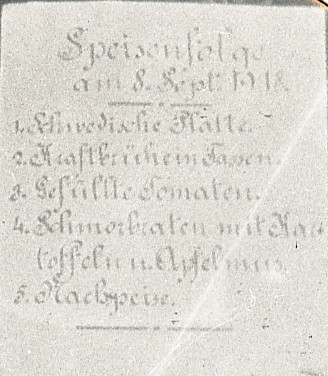 Speisenfolge
am 8. Sept. 1918.
1. Schwedische Platte.
2. Kraftbrühe in Tassen.
3. Gefüllte Tomaten.
4. Schmorbraten mit Kar-
toffeln u. Apfelmus.
5. Nachspeise.